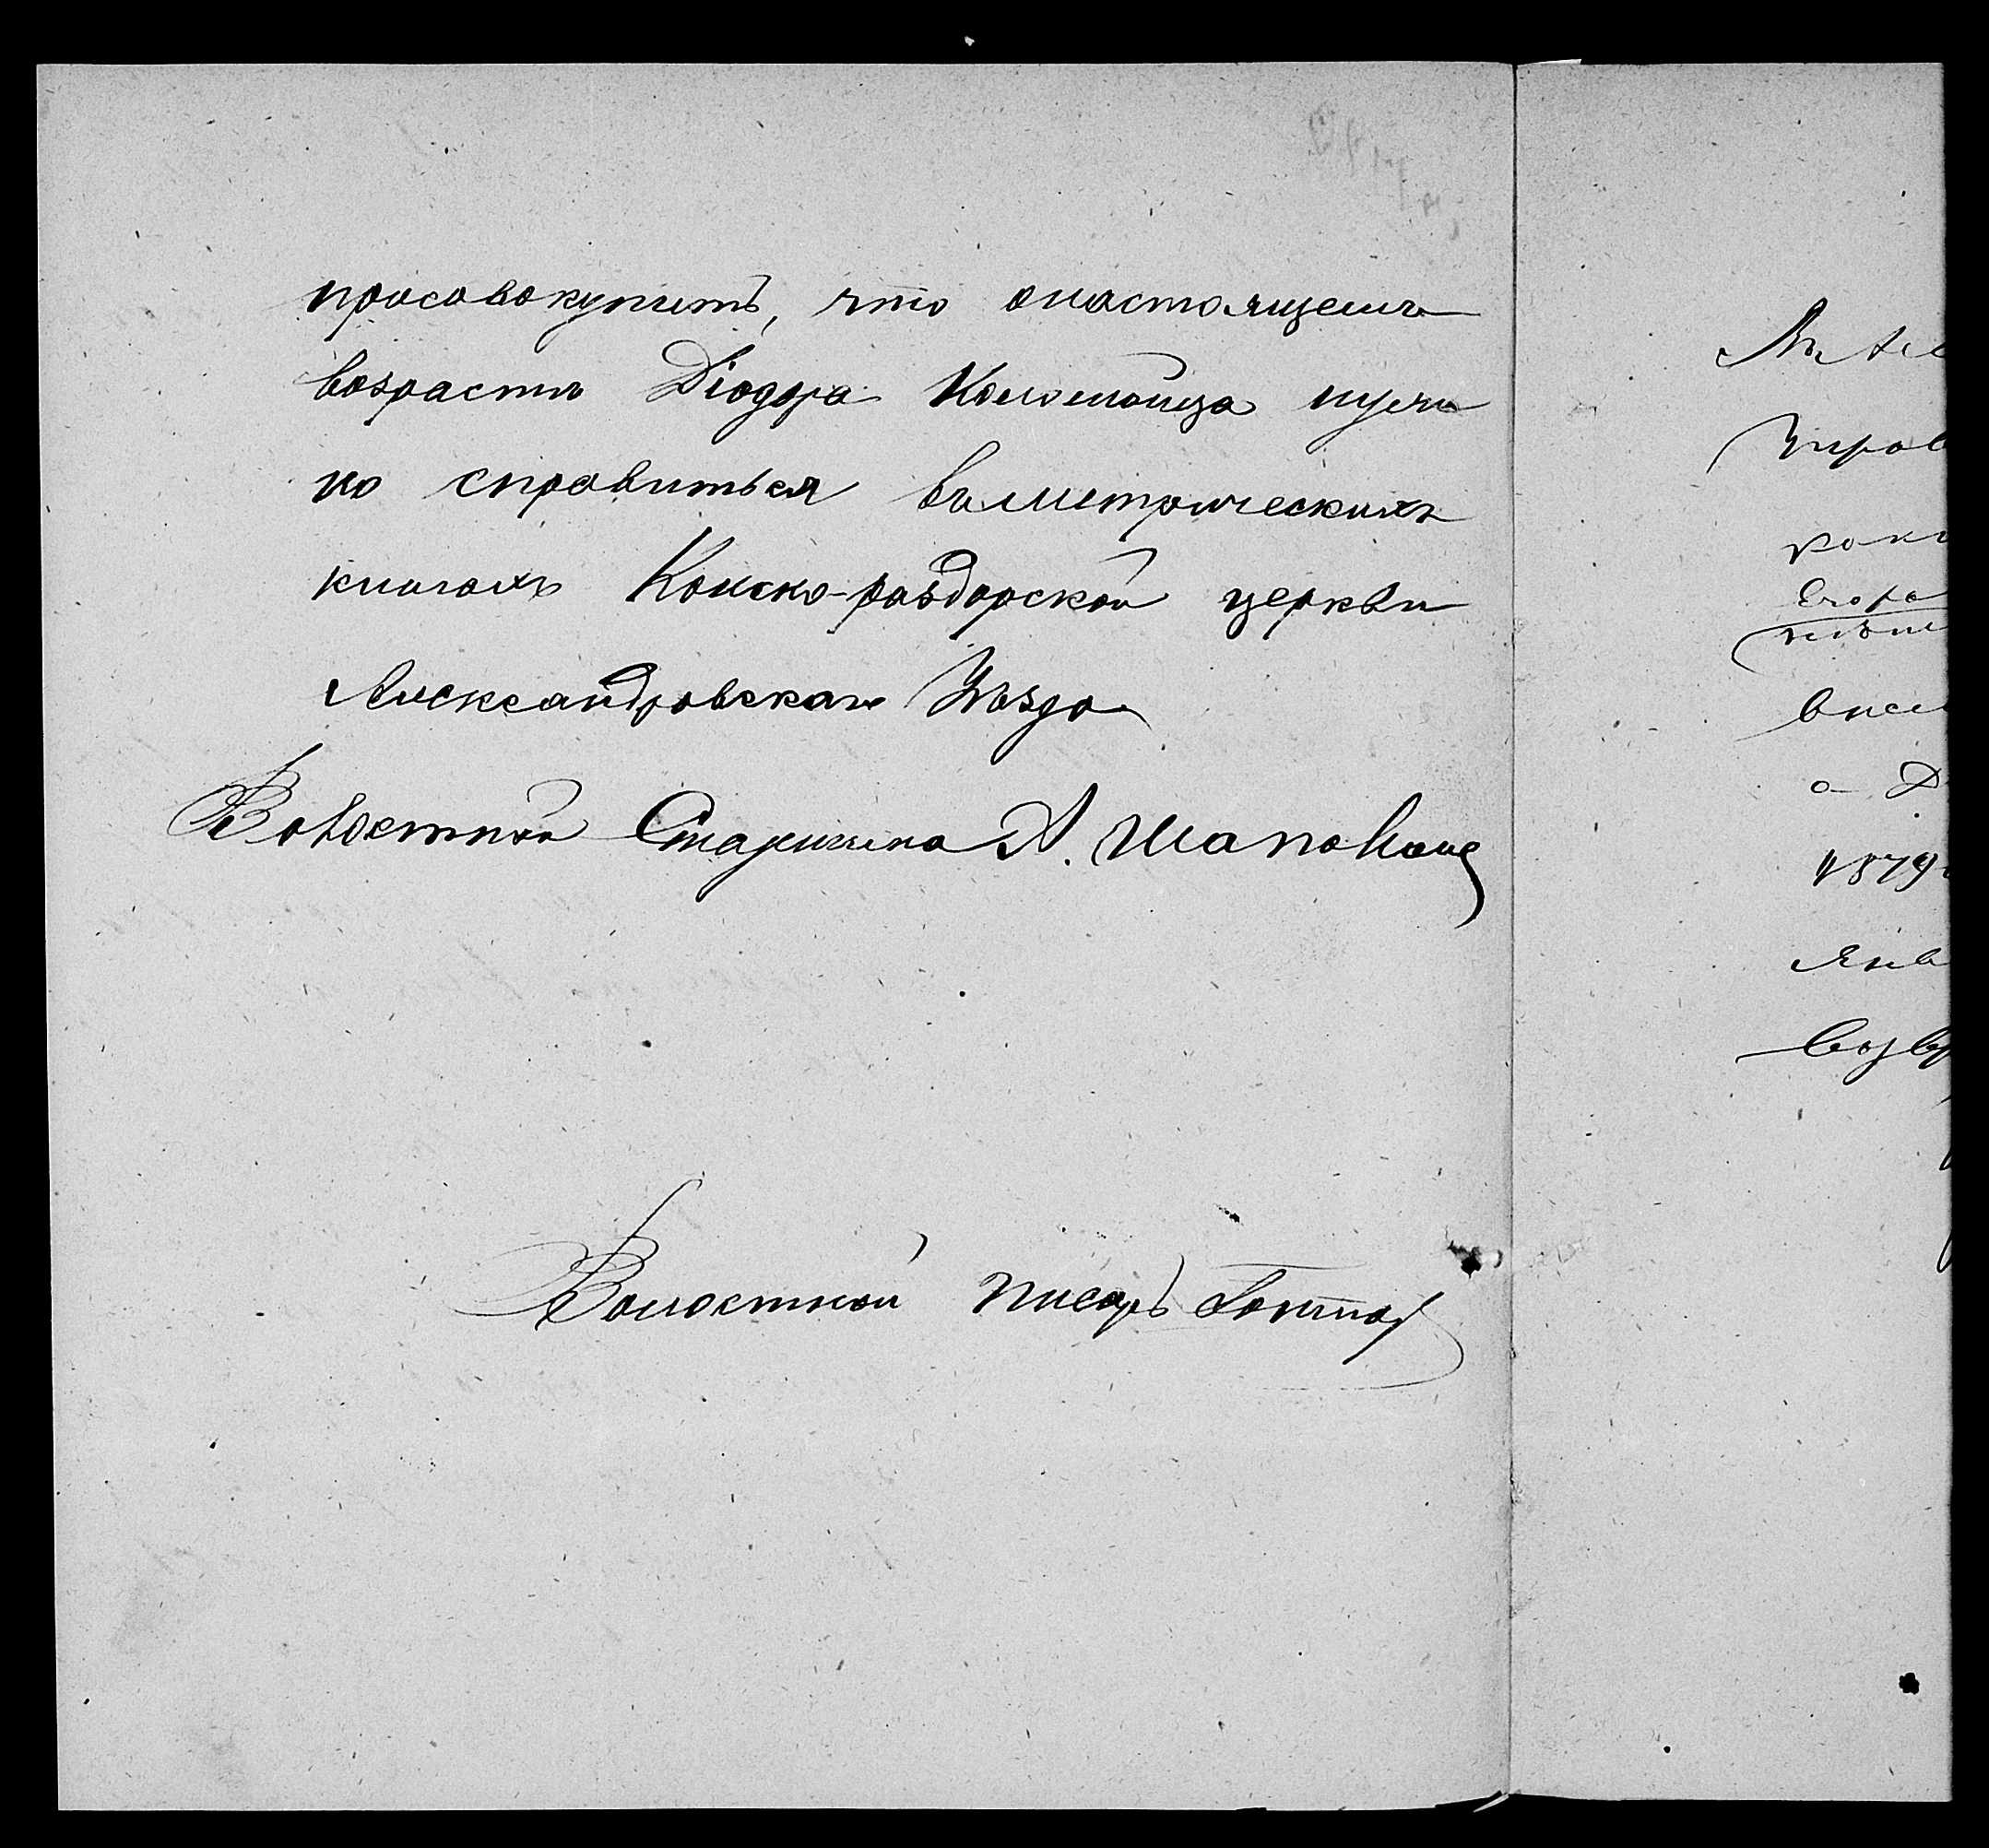 присовокупить, что онастоящемъ
возрастѣ Діодора Коломойца нуж
но справиться въметрическихъ
книгахъ Конско-раздорской церкви
Александровскаго Уѣзда
Волостной Старшина А. Шаповал
Волостной писарь
Егора
1879
Янв
возвр